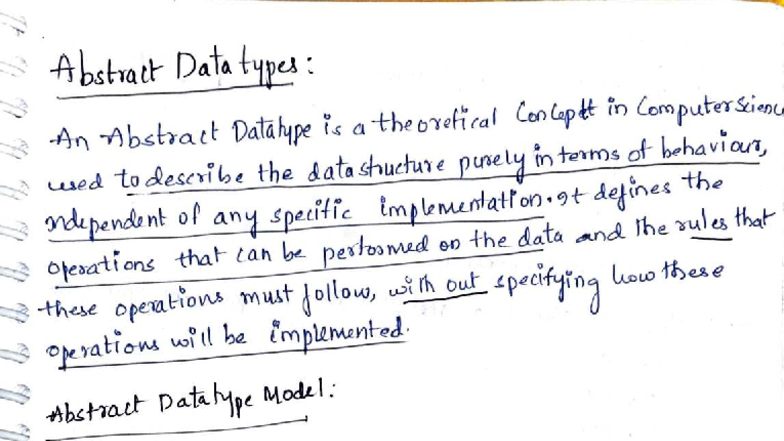 Abstract Data types :
An Abstract Datatype is a theoretical Concept in Computer Scienc
used to describe the data structure purely in terms of behaviour,
independent of any specific implementation. It defines the
operations that can be performed on the data and the rules that
these operations must follow, with out specifying how these
operations will be implemented.
Abstract Datatype Model :